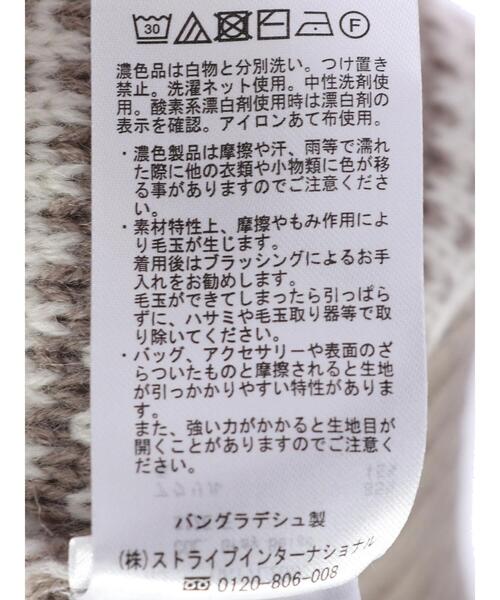 30 F
濃色品は白物と分別洗い。つけ置き
禁止。洗濯ネット使用。中性洗剤使
用。酸素系漂白剤使用時は漂白剤の
表示を確認。アイロンあて布使用。
・濃色製品は摩擦や汗、雨等で濡れ
た際に他の衣類や小物類に色が移
る事がありますのでご注意くださ
い。
・素材特性上、摩擦やもみ作用によ
り毛玉が生じます。
着用後はブラッシングによるお手
入れをお勧めします。
毛玉ができてしまったら引っぱら
ずに、ハサミや毛玉取り器等で取
り除いてください。
・バッグ、アクセサリーや表面のざ
らついたものと摩擦されると生地
が引っかかりやすい特性がありま
す。
また、強い力がかかると生地目が
開くことがありますのでご注意く
ださい。
バングラデシュ製
(株)ストライプインターナショナル
0120-806-008